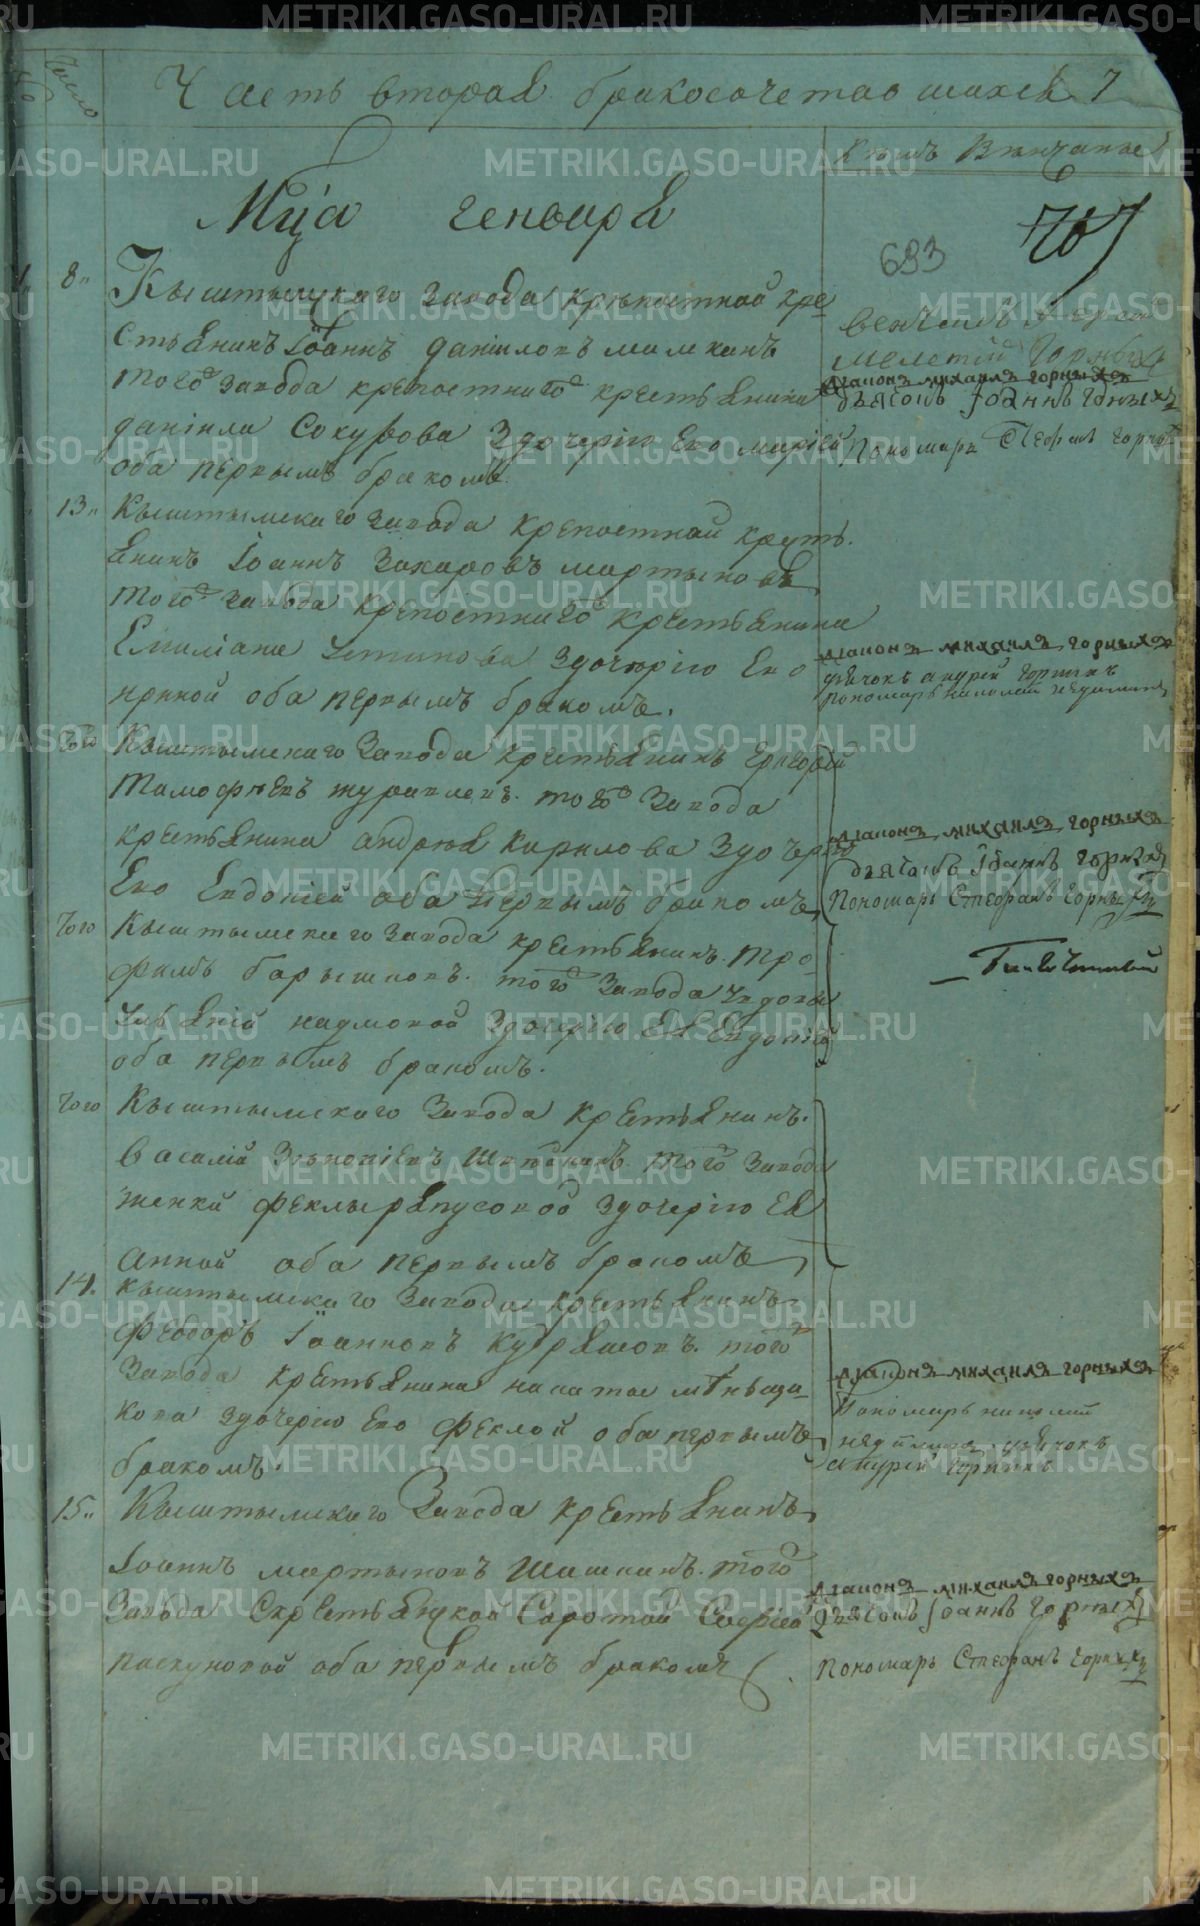 число
Часть вторая бракосочетавшихся 7
Кемъ Венчаные
Мца генваря
693
707
8 Кыштымскаго завода крепостной кре
стьянинъ Іоаннъ даніловъ
того завода крепостнаго крестьянина
даніила здочерію Ево маріей
оба первымъ бракомъ
венчалъ Іерей
мелетій Горныхъ
діаконъ михаилъ горныхъ
дьячокъ Іоаннъ Горныхъ
Пономарь Стефанъ горныхъ
13 Кыштымскаго завода крепостной кресть
янинъ Іоаннъ Захаровъ мартыновъ
того завода крепостнаго крестьянина
Емиліана Устинова здочерію Ево
ириной оба первымъ бракомъ.
діаконъ михаилъ горныхъ
дьячокъ андрей горныхъ
пономарь николай
того Кыштымскаго Завода крестьянинъ григорей
Тимофеевъ журавлевъ. того Завода
крестьянина андрея Кирилова Здочерію
Ево Евдокіей оба Первымъ бракомъ
діаконъ михаилъ горныхъ
дьячокъ Іоаннъ горныхъ
Пономарь Стефанъ Горныхъ
того Кыштымскаго Завода крестьянинъ. тро
фимъ барышновъ. того Завода удовы
наумовой Здочерію Ея Евдокіей
оба первымъ бракомъ.
того Кыштымскаго Завода крестьянинъ.
василій того Завода
женки феклы здочерію Ея
Анной оба первымъ бракомъ
14. Кыштымскаго Завода крестьянинъ
Феодоръ Іоанновъ Кудряшовъ. того
Завода крестьянина
кова здочерію Ево феклой оба первымъ
бракомъ.
діаконъ михаилъ горныхъ
Пономарь николай
дьячокъ
андрей горныхъ
15 Кыштымскаго Завода крестьянинъ
Іоаннъ мартыновъ Шашкинъ. того
Завода Скрестьянской Сиротой Софіей
пискуновой оба первымъ бракомъ
діаконъ михаилъ горныхъ
дьячокъ Іоаннъ Горныхъ
пономарь Стефанъ горныхъ
METRIKI.GASO-URAL.RU